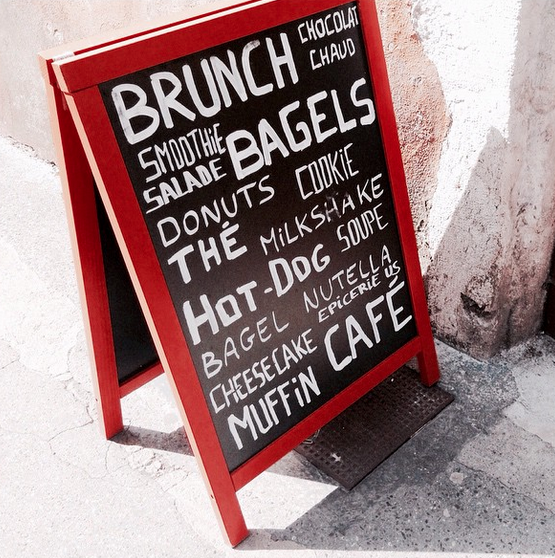 BRUNCH CHOCOLAT CHAUD
SMOOTHiE BAGELS
SALADE
DONUTS COOKiE
THÉ MiLKSHAKE
HOT-DOG SOUPE
BAGEL NUTELLA
EPiCERiE US
CHEESECAKE CAFÉ
MUFFiN